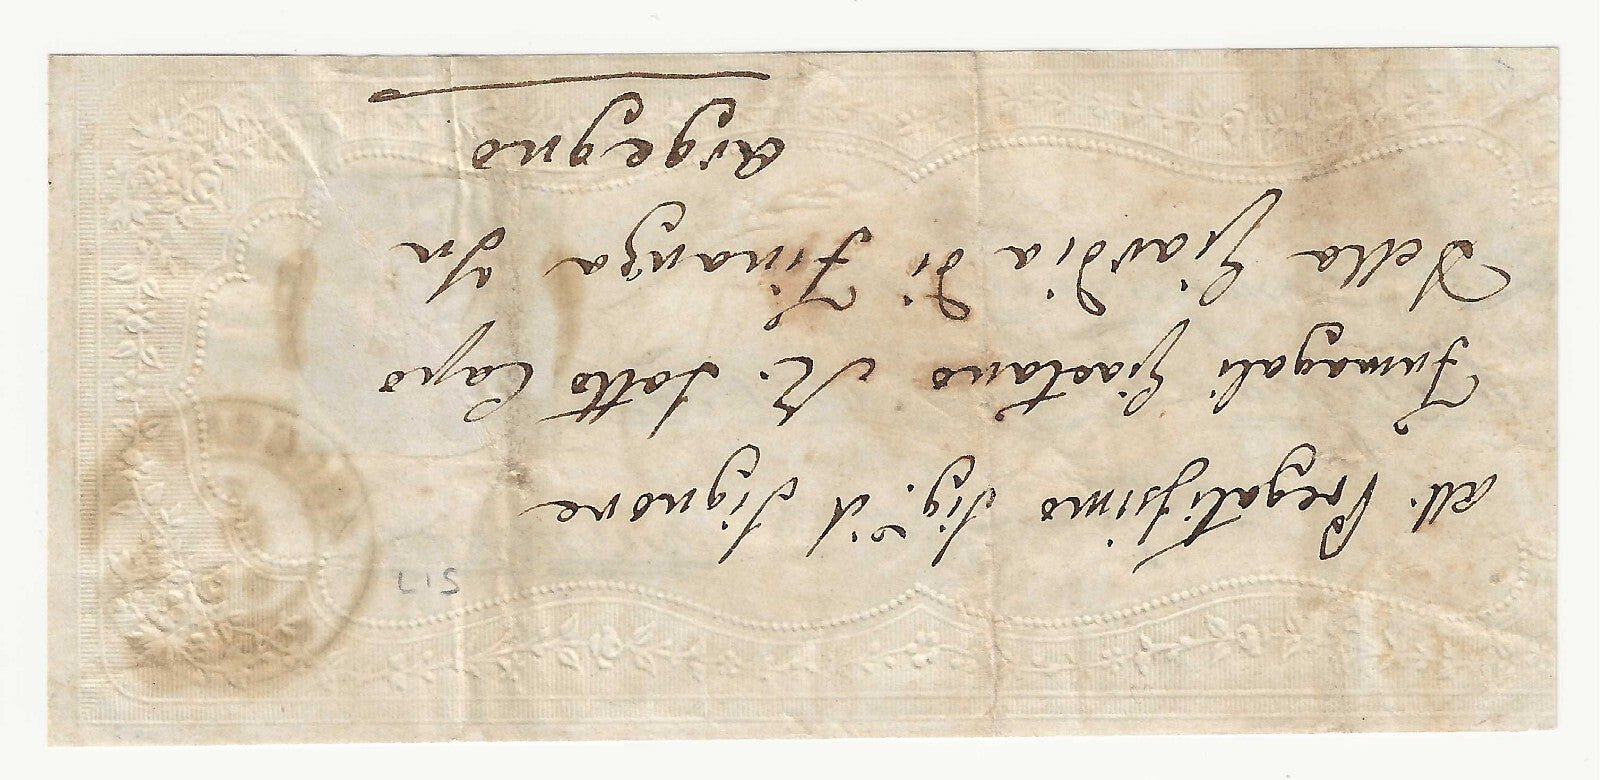 All. Pregatissimo Sig.r il Signore
Fumagali Gaetano R. Sotto Capo
Della Giardia di Finanza In
Argegno
LIS